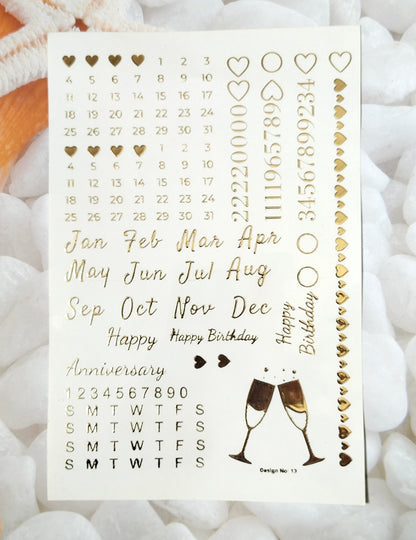 1 2 3
4 5 6 7 8 9 10
11 12 13 14 15 16 17
18 19 20 21 22 23 24
25 26 27 28 29 30 31
1 2 3
4 5 6 7 8 9 10
11 12 13 14 15 16 17
18 19 20 21 22 23 24
25 26 27 28 29 30 31
222200000
1111965789
34567899234
Jan Feb Mar Apr
May Jun Jul Aug
Sep Oct Nov Dec
Happy Happy Birthday
Happy
Birthday
Anniversary
1 2 3 4 5 6 7 8 9 0
S M T W T F S
S M T W T F S
S M T W T F S
S M T W T F S
Design No 13